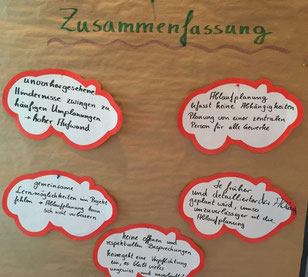 Zusammenfassung
unvorhergesehene
Hindernisse zwingen zu
häufigen Umplanungen
→ hoher Aufwand
Ablaufplanung
erfasst keine Abhängigkeiten
Planung von einer zentralen
Person für alle Gewerke
gemeinsame
Lernmöglichkeiten am Projekt
fehlen → Ablaufplanung kann
sich nicht verbessern
Je früher
und detaillierter der Ablauf
geplant wird, umso
unzuverlässiger ist die
Ablaufplanung
keine offenen und
respektvollen Besprechungen
Keiner geht eine Verpflichtung
ein, es bleibt vieles
ungewiss und